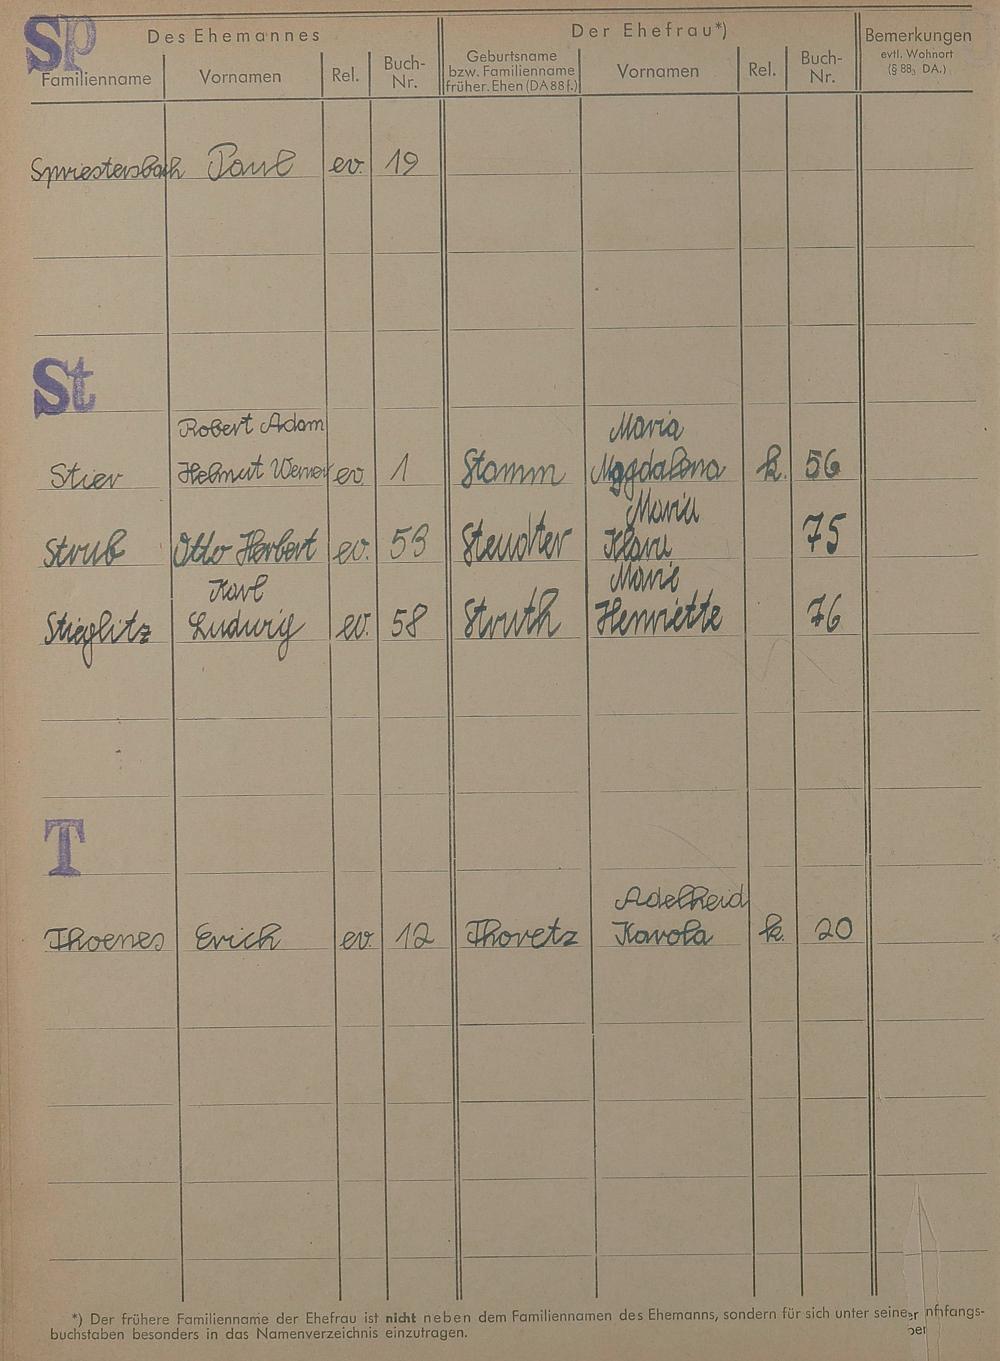 Sp
Des Ehemannes
Der Ehefrau*)
Bemerkungen
evtl. Wohnort
(§ 88, DA.)
Familienname
Vornamen
Rel.
Buch-
Nr.
Geburtsname
bzw. Familienname
früher. Ehen (DA 88 f.)
Vornamen
Rel.
Buch-
Nr.
Spriestersbach Paul ev. 19
St
Robert Adam
Maria
Stier Helmut Werner ev 1 Stamm Magdalena k. 56
Maria
Strub Otto Herbert ev. 53 Steudter Klara 75
Karl
Marie
Stieglitz Ludwig ev. 58 Struth Henriette 76
T
Adelheid
Thoenes Erich ev. 12 Thoretz Karola k. 20
*) Der frühere Familienname der Ehefrau ist nicht neben dem Familiennamen des Ehemanns, sondern für sich unter seiner nfangs-
buchstaben besonders in das Namenverzeichnis einzutragen.